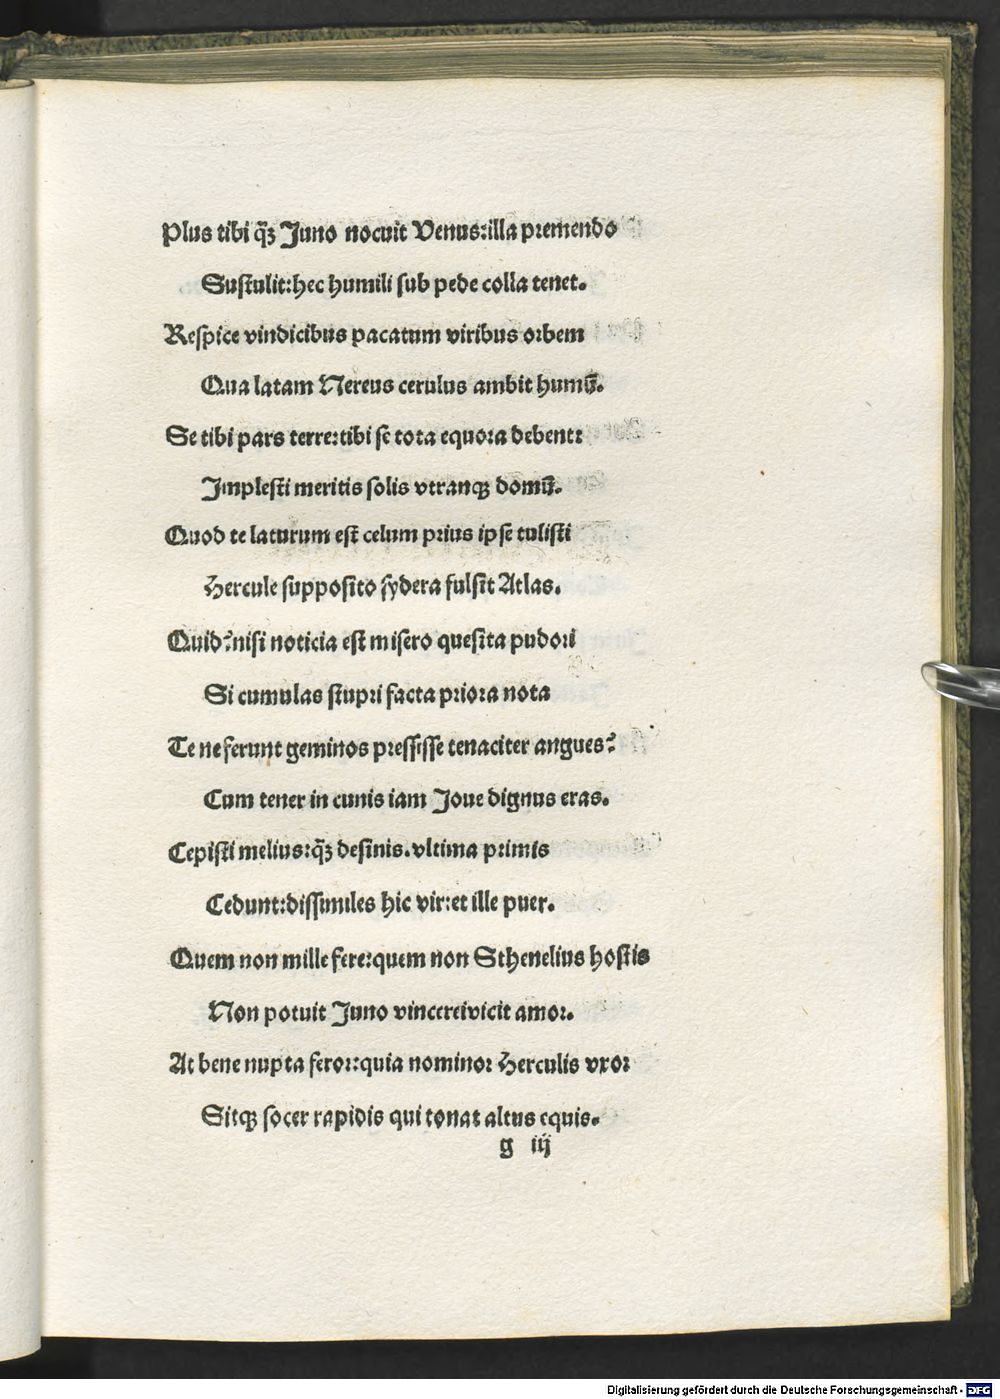 Plus tibi q̃ꝫ Juno nocuit Venus:illa premendo
Suſtulit:hec humili ſub pede colla tenet.
Reſpice vindicibus pacatum viribus orbem
Qua latam Nereus cerulus ambit humũ.
Se tibi pars terre:tibi ſe tota equora debent:
Impleſti meritis ſolis vtranqꝫ domũ.
Quod te laturum eſt celum prius ipſe tuliſti
Hercule ſuppoſito ſydera fulſit Atlas.
Quid?niſi noticia eſt miſero queſita pudori
Si cumulas ſtupri facta priora nota
Te ne ferunt geminos preſſiſſe tenaciter angues?
Cum tener in cunis iam Joue dignus eras.
Cepiſti melius:q̃ꝫ deſinis.vltima primis
Cedunt:diſſimiles hic vir:et ille puer.
Quem non mille fere:quem non Sthenelius hoſtis
Non potuit Juno vincere:vicit amor.
At bene nupta feror:quia nominor Herculis vxor
Sitqꝫ ſocer rapidis qui tonat altus equis.
g iij
Digitalisierung gefördert durch die Deutsche Forschungsgemeinschaft - DFG